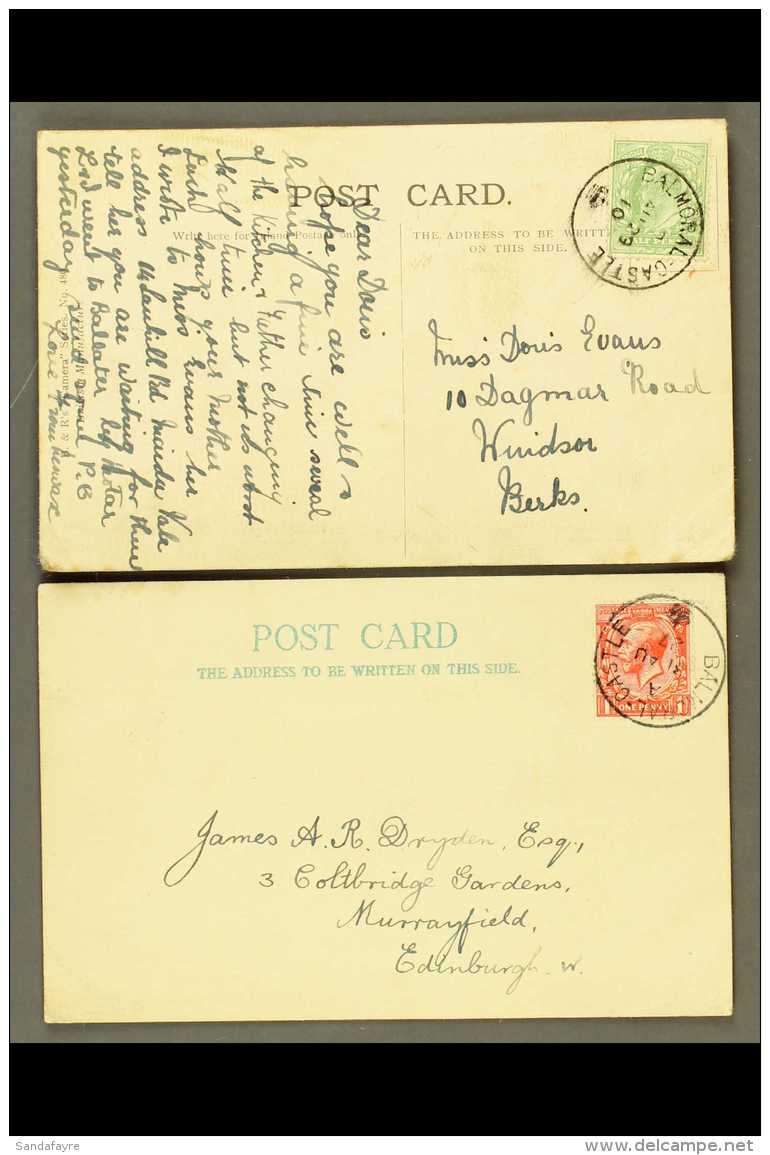 POST CARD.
Write here for Inland Postage only.
THE ADDRESS TO BE WRITTEN
ON THIS SIDE.
BALMORAL-CASTLE
AU 29
10
HALF PENNY
Dear Doris
hope you are well &
having a fine time seveal
of the Kitchen & Father changing
Half time but not its worst
Luck hows your Mother
I wrote to Miss Evans her
address Lauhill Rd Maida Vale
tell her you are waiting for them
L &J went to Ballater by Motar
yesterday
Love from
Series, No. 48
Miss Doris Evans
10 Dagmar Road
Windsor
Berks.
POST CARD
THE ADDRESS TO BE WRITTEN ON THIS SIDE.
BALMORAL-CASTLE
A
31 AU
ONE PENNY
James A. R. Dryden, Esq.,
3 Coltbridge Gardens,
Murrayfield,
Edinburgh. W.
Sandafayre
delcampe.net